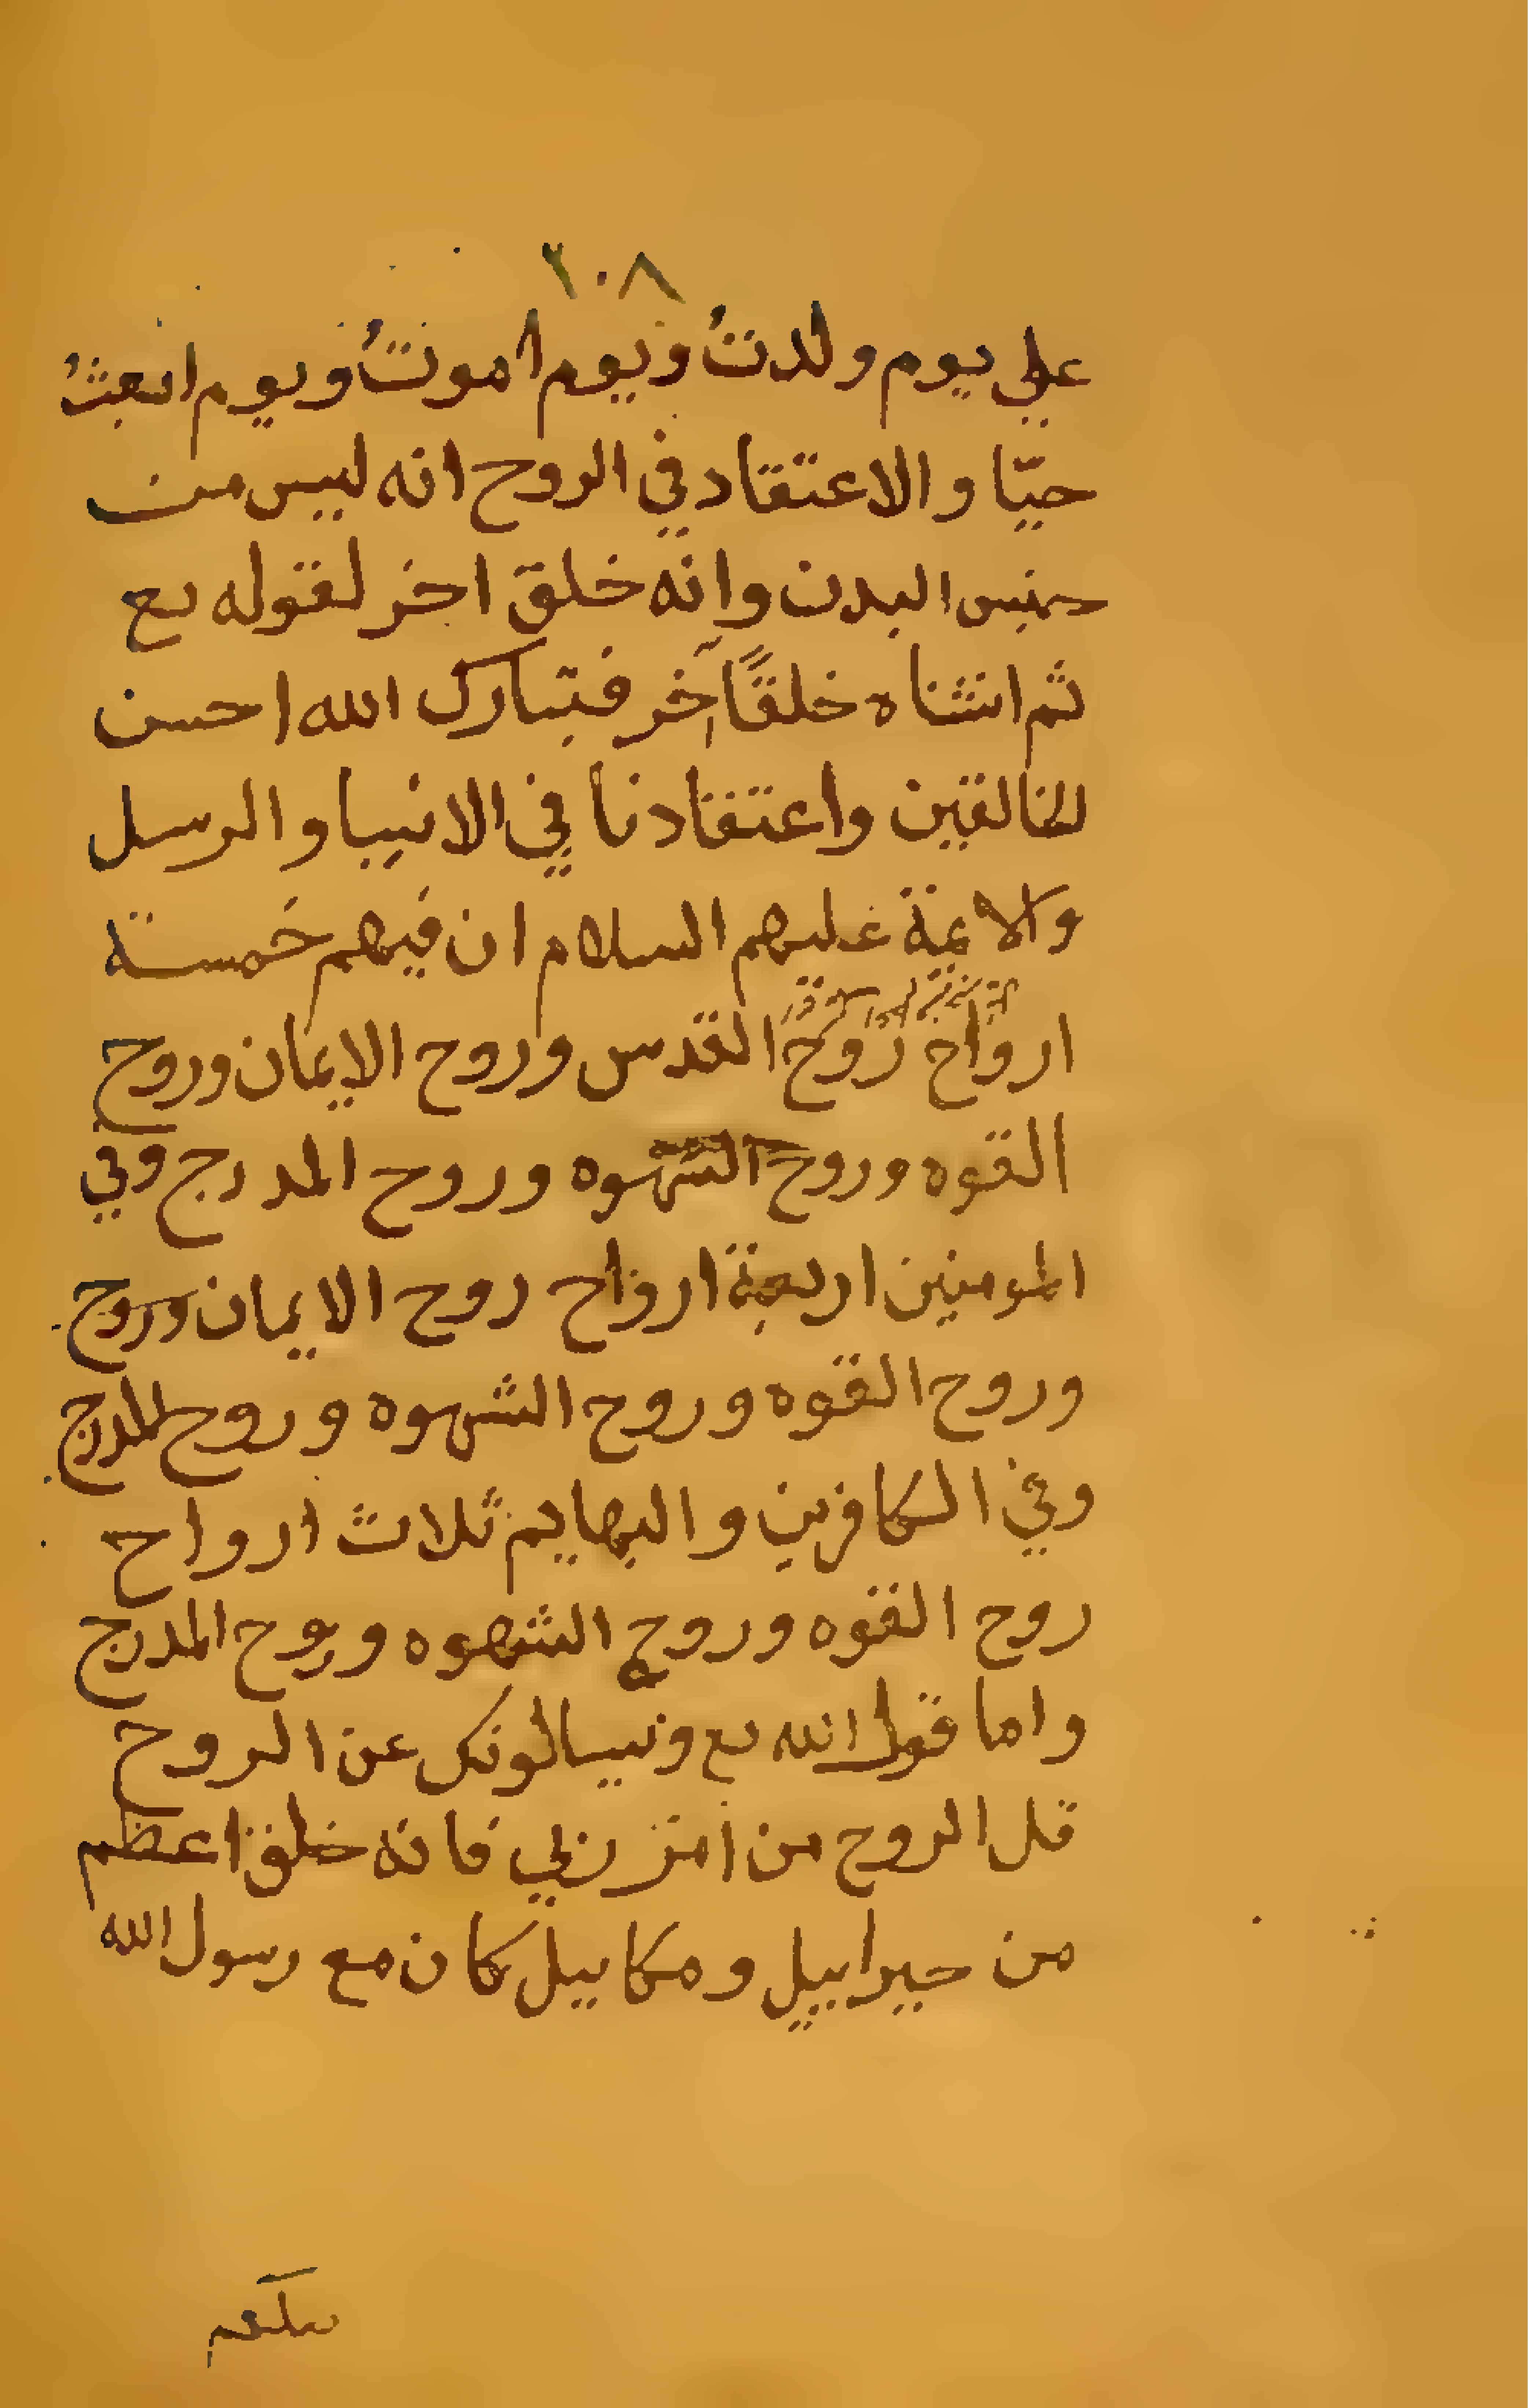 ٢٠٨
علي يوم ولدتُ ويوم اموتُ ويوم ابعثُ
حيّا والاعتقاد في الروح انه ليس من
جنس البدن وانه خلق اخر لقوله تع
ثم انشاناه خلقًا آخر فتبارك الله احسن
الخالقين واعتقادنا في الانبيا والرسل
والايمة عليهم السلام ان فيهم خمسة
ارواح روح القدس وروح الايمان وروح
القوه وروح الشهوه وروح المدرج وفي
المومنين اربعة ارواح روح الايمان وروح
وروح القوه وروح الشهوه وروح المدرج
وفي الكافرين والبهايم ثلاث ارواح
روح القوه وروح الشهوه وروح المدرج
واما قول الله تع ويسالونك عن الروح
قل الروح من امر ربي فانه خلق اعظم
من جبراييل ومكاييل كان مع رسول الله